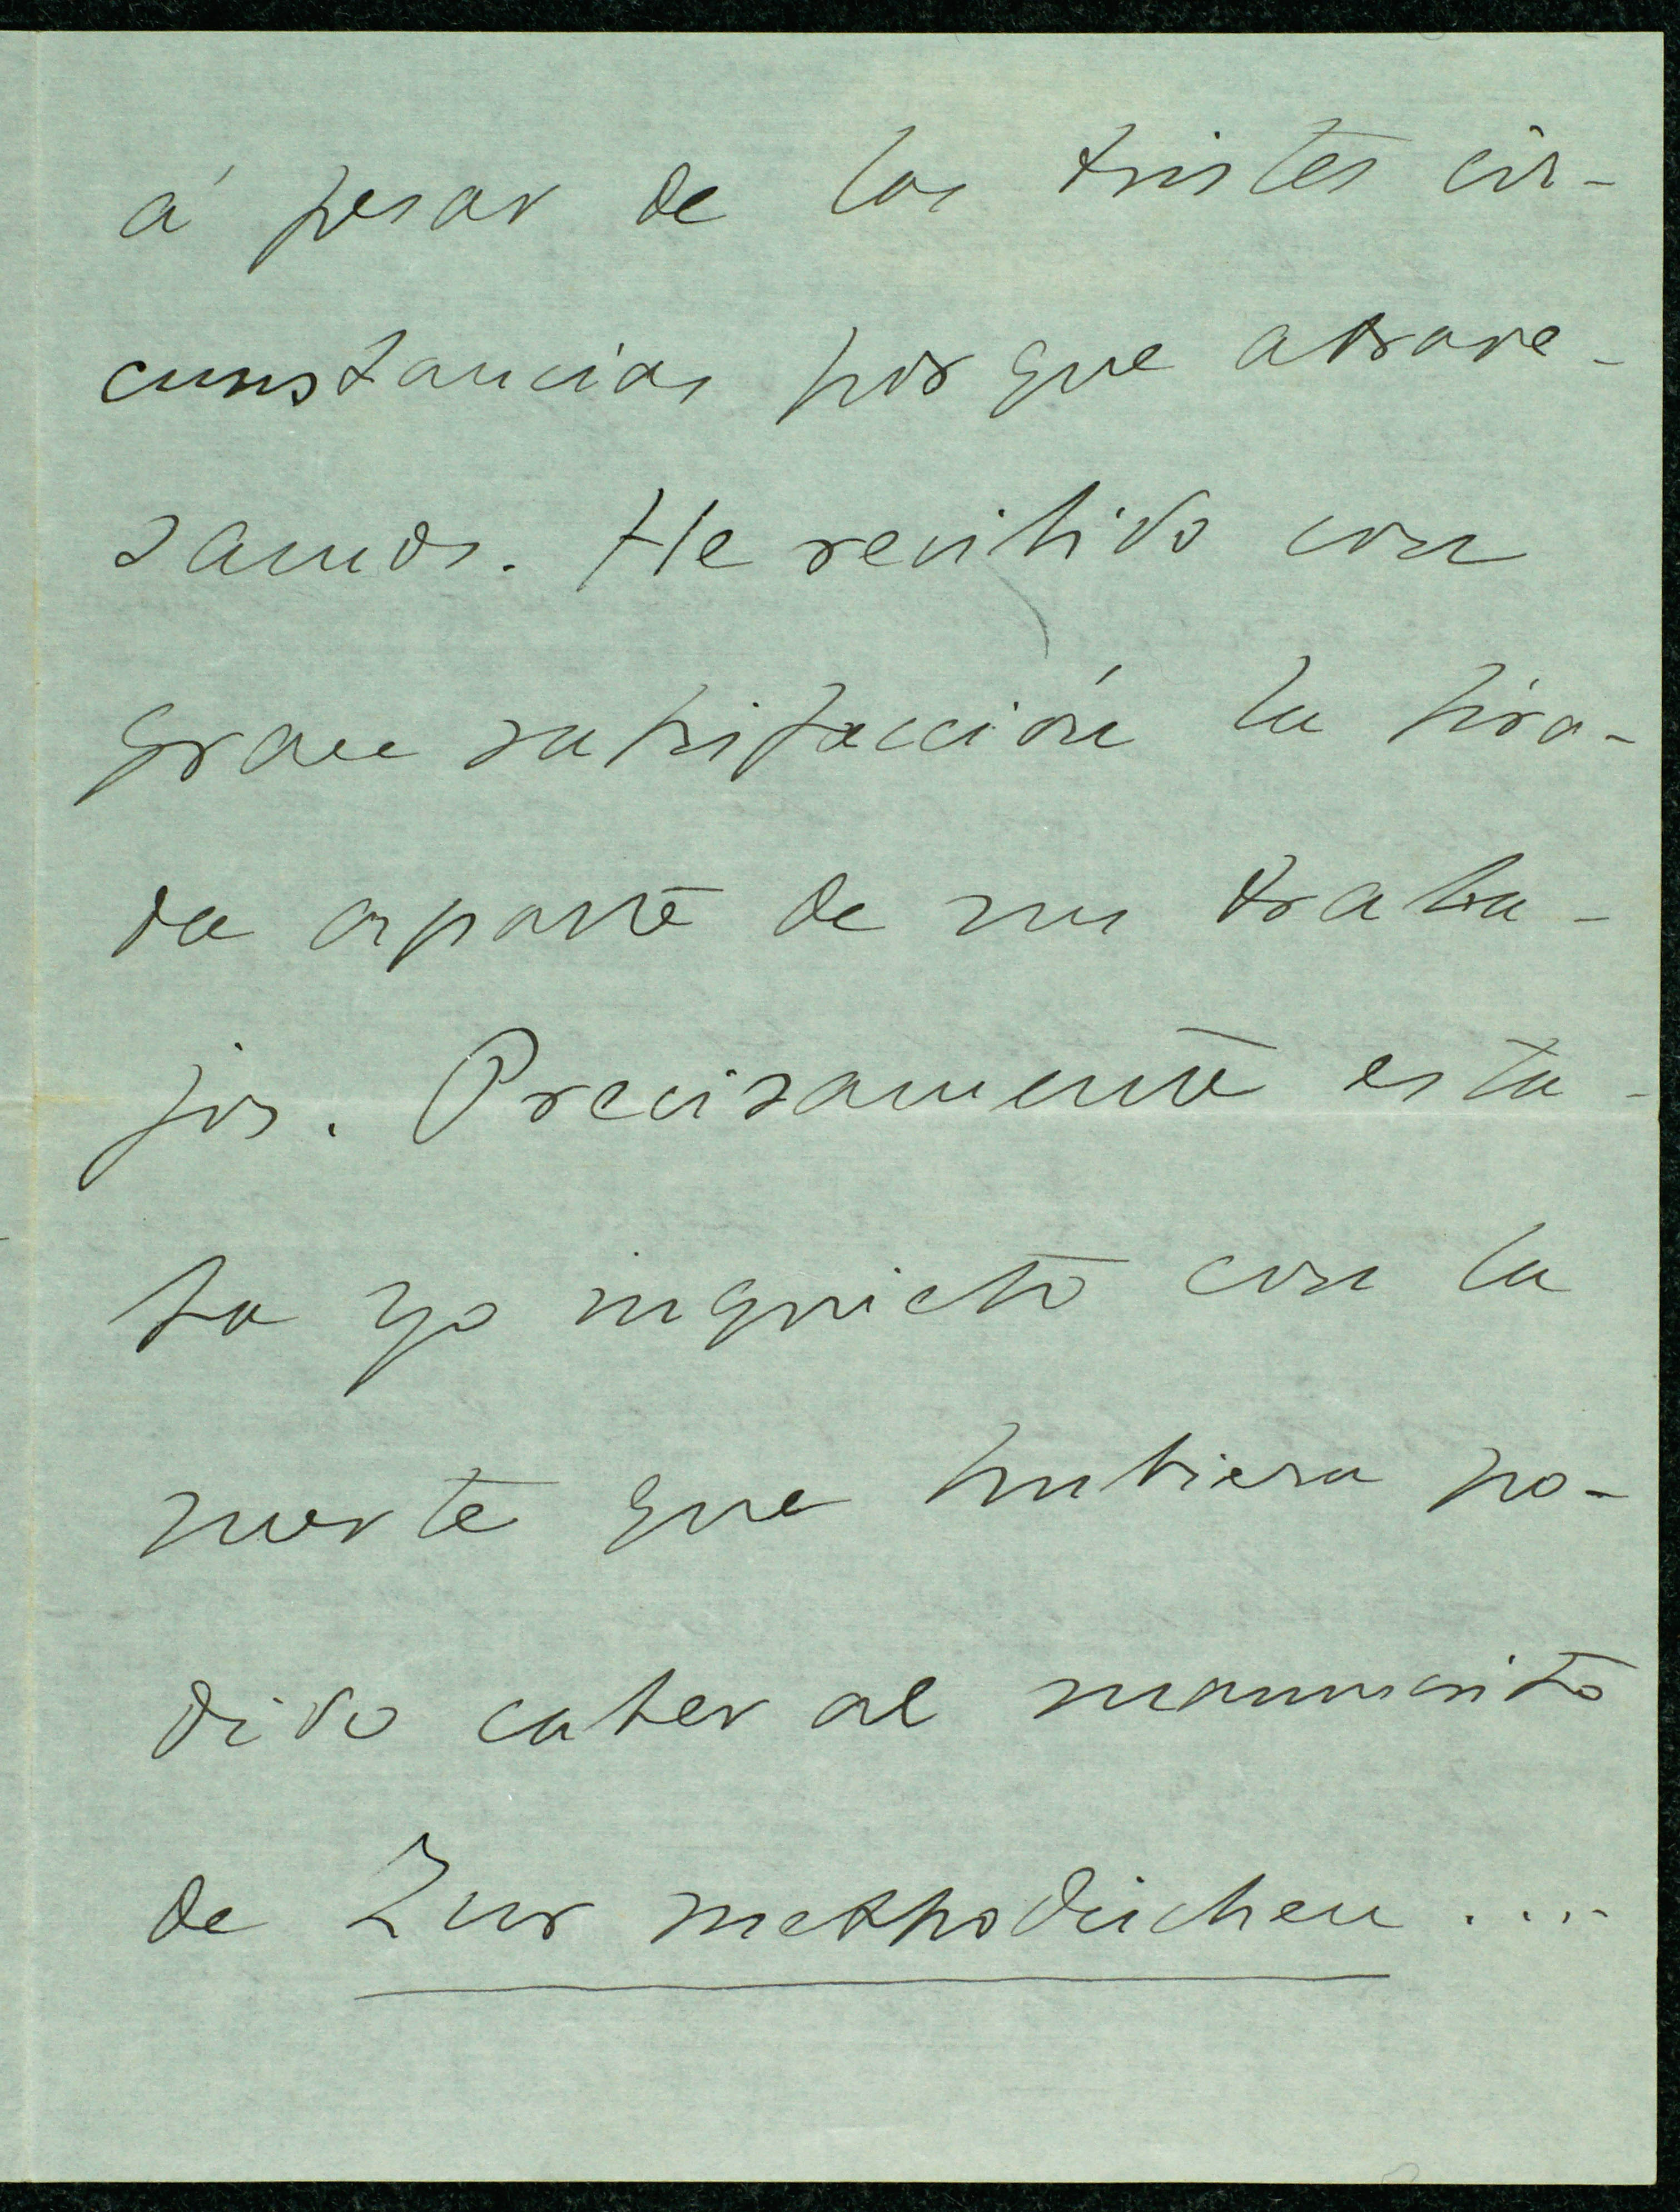 á pesar de las tristes cir-
cunstancias por que atrave-
samos. He recibido con
gran satisfacción la tira-
da aparte de mis traba-
jos. Precisamente esta-
ba yo inquieto con la
suerte que hubiera po-
dido caber al manuscrito
de Zur methodischen ....